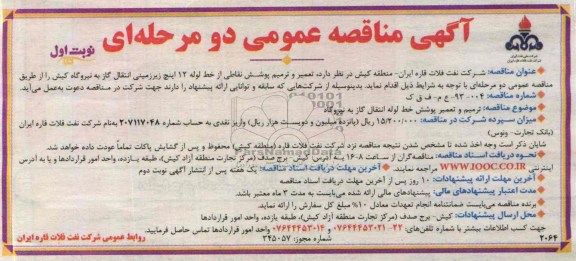 آگهی مناقصه عمومی دو مرحله‌ای
نوبت اول
عنوان مناقصه: شرکت نفت فلات قاره ایران- منطقه کیش در نظر دارد، تعمیر و ترمیم پوشش نقاطی از خط لوله ۱۲ اینچ زیرزمینی انتقال گاز به نیروگاه کیش را از طریق
مناقصه عمومی دو مرحله‌ای با توجه به شرایط ذیل اقدام نماید. بدینوسیله از شرکت‌هایی که سابقه و توانایی ارائه پیشنهاد را دارند جهت شرکت در مناقصه دعوت به‌عمل می‌آید.
شماره مناقصه: ۰۰۴-۹۳- م- ف ق ک
موضوع مناقصه: ترمیم و تعمیر پوشش خط لوله انتقال گاز به نیروگاه
میزان سپرده شرکت در مناقصه: ۱۵/۲۰۰/۰۰۰ ریال (پانزده میلیون و دویست هزار ریال) واریز نقدی به حساب شماره ۲۰۷۱۱۷۰۴۸ به‌نام شرکت نفت فلات قاره ایران
(بانک تجارت- ونوس)
شایان ذکر است وجه اخذ شده تا مشخص شدن نتیجه مناقصه نزد شرکت نفت فلات قاره (منطقه کیش) محفوظ و پس از گشایش پاکات تماماً عودت داده خواهد شد.
نحوه دریافت اسناد مناقصه: مناقصه‌گران از ساعت ۸-۱۶ به آدرس: کیش- برج صدف (مرکز تجارت منطقه آزاد کیش)، طبقه یازده، واحد امور قراردادها و یا به آدرس
اینترنتی WWW.IOOC.CO.IR مراجعه نمایند. آخرین مهلت دریافت اسناد مناقصه: یک هفته پس از انتشار آگهی نوبت دوم
آخرین مهلت ارائه پیشنهادات: ۱۰ روز پس از آخرین مهلت دریافت اسناد مناقصه
مدت اعتبار پیشنهادهای مالی: پیشنهادهای مالی ارائه شده می‌بایست به مدت ۳ ماه معتبر باشد.
برنده مناقصه می‌بایست ضمانتنامه انجام تعهدات معادل ۱۰٪ مبلغ کل سفارش را ارائه نماید.
محل ارسال پیشنهادات: کیش- برج صدف (مرکز تجارت منطقه آزاد کیش)، طبقه یازده، واحد امور قراردادها
جهت کسب اطلاعات بیشتر با شماره تلفن‌های: ۲۲-۰۷۶۴۴۴۵۳۰۲۱ و ۰۷۶۴۴۴۵۳۰۱۴ واحد امور قراردادها تماس حاصل فرمایید.
۲۰۶۴ شماره مجوز: ۳۴۵۰۵۷ روابط عمومی شرکت نفت فلات قاره ایران